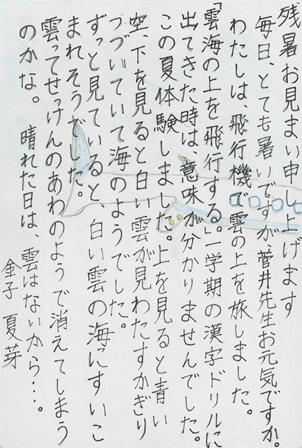 残暑お見まい申し上げます
毎日、とても暑いですが、菅井先生お元気ですか。
わたしは、飛行機で雲の上を旅しました。
「雲海の上を飛行する。」一学期の漢字ドリルに
出てきた時は、意味が分かりませんでした。
この夏体験しました。上を見ると青い
空、下を見ると白い雲が見わたすかぎり
つづいていて海のようでした。
ずっと見ていると、白い雲の海にすいこ
まれそうでした。
雲ってせっけんのあわのようで消えてしまう
のかな。晴れた日は、雲はないから…。
金子 夏芽